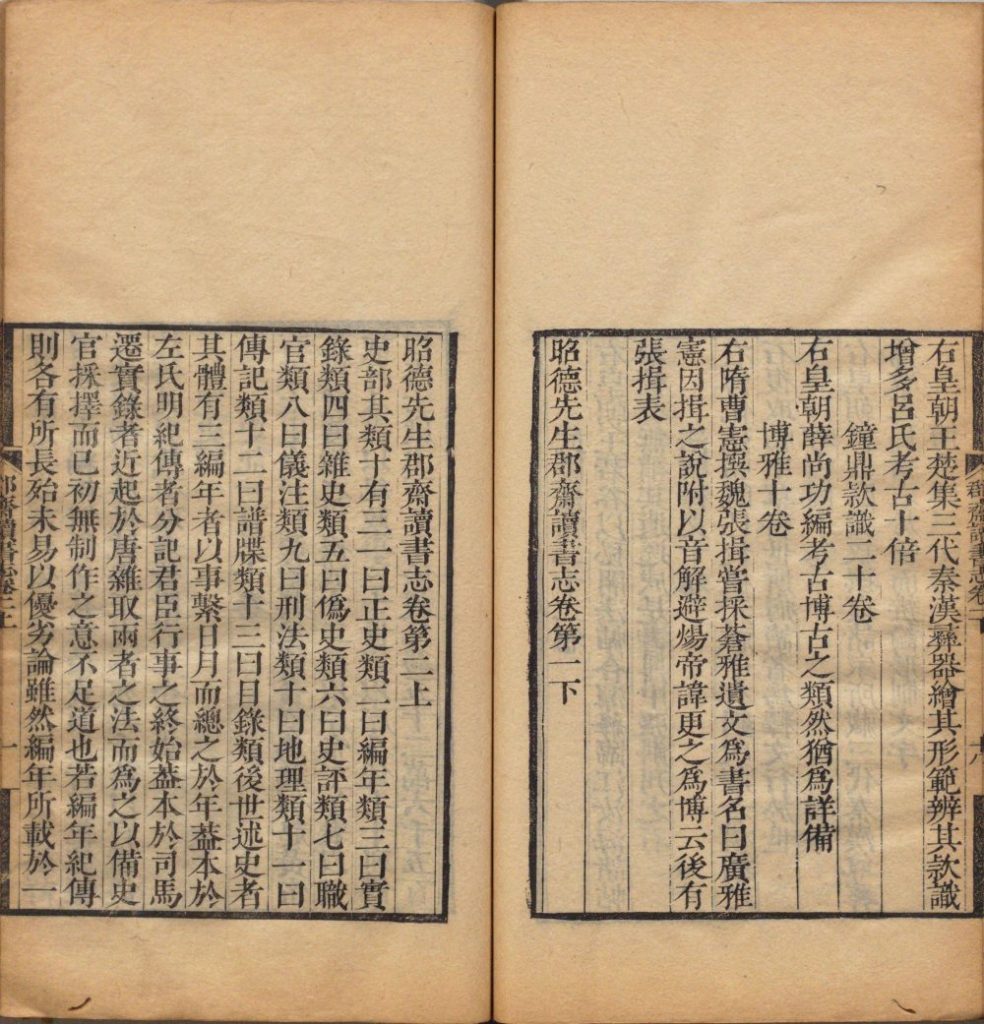 右皇朝王楚集三代秦漢彛器繪其形範辨其款識
增多呂氏考古十倍
鐘鼎款識二十卷
右皇朝薛尚功編考古博古之類然猶為詳備
博雅十卷
右隋曹憲撰魏張揖嘗採蒼雅遺文為書名曰廣雅
憲因揖之說附以音解避煬帝諱更之為博云後有
張揖表
昭德先生郡齋讀書志卷第一下
昭德先生郡齋讀書志卷第二上
史部其類十有三一曰正史類二曰編年類三曰實
錄類四曰雜史類五曰僞史類六曰史評類七曰職
官類八曰儀注類九曰刑法類十曰地理類十一曰
傳記類十二曰譜牒類十三曰目錄類後世述史者
其體有三編年者以事繫日月而總之於年葢本於
左氏明紀傳者分記君臣行事之終始葢本於司馬
遷實錄者近起於唐雜取兩者之法而為之以備史
官採擇而已初無制作之意不足道也若編年紀傳
則各有所長殆未易以優劣論雖然編年所載於一
郡齋讀書志卷二上
一